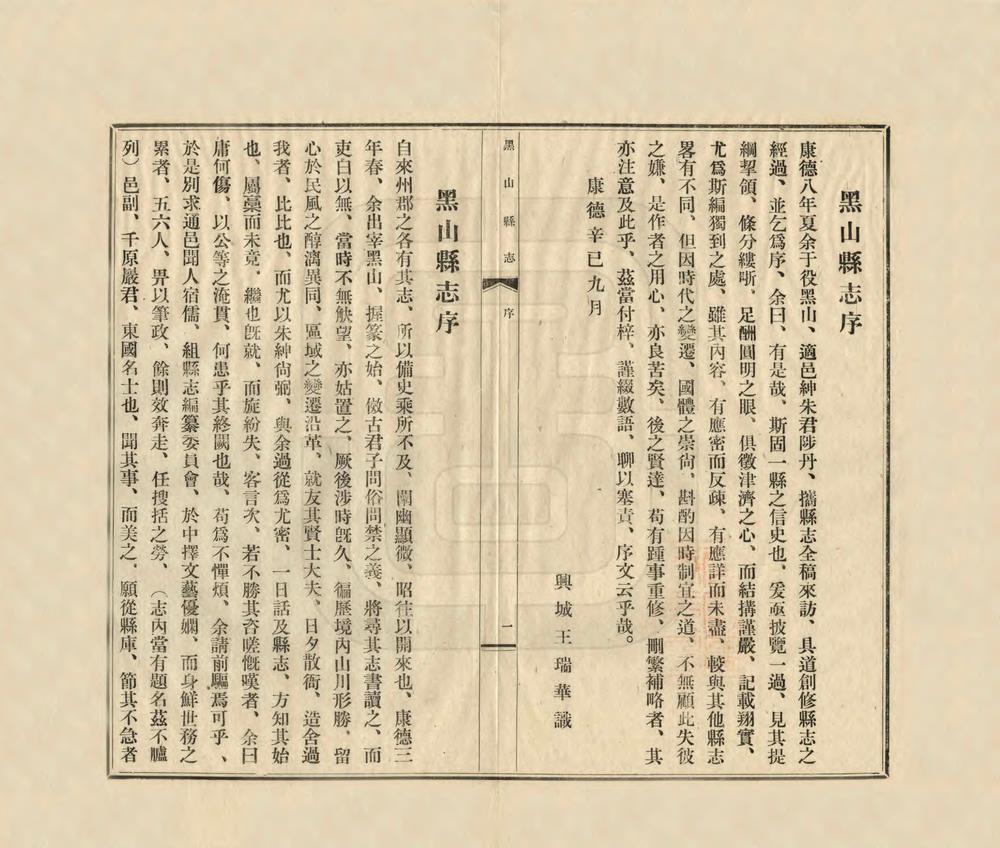 黑山縣志序
康德八年夏余于役黑山、適邑紳朱君陟丹、攜縣志全稿來訪、具道創修縣志之
經過、並乞爲序、余曰、有是哉、斯固一縣之信史也、爰亟披覽一過、見其提
綱挈領、條分縷晰、足酬圓明之眼、俱徵津濟之心、而結搆謹嚴、記載翔實、
尤爲斯編獨到之處、雖其內容、有應密而反疎、有應詳而未盡、較與其他縣志
畧有不同、但因時代之變遷、國體之崇尙、斟酌因時制宜之道、不無顧此失彼
之嫌、是作者之用心、亦良苦矣、後之賢達、苟有踵事重修、刪繁補略者、其
亦注意及此乎、茲當付梓、謹綴數語、聊以塞責、序文云乎哉。
康德辛巳九月
興城王瑞華識
黑山縣志
序
一
黑山縣志序
自來州郡之各有其志、所以備史乘所不及、闡幽顯微、昭往以開來也、康德三
年春、余出宰黑山、握篆之始、倣古君子問俗問禁之義、將尋其志書讀之、而
吏白以無、當時不無觖望、亦姑置之、厥後涉時旣久、徧歷境內山川形勝、留
心於民風之醇漓異同、區域之變遷沿革、就友其賢士大夫、日夕散衙、造舍過
我者、比比也、而尤以朱紳尙弼、與余過從爲尤密、一日話及縣志、方知其始
也、屬藁而未竟、繼也旣就、而旋紛失、客言次、若不勝其咨嗟慨嘆者、余曰
庸何傷、以公等之淹貫、何患乎其終闕也哉、苟爲不憚煩、余請前驅焉可乎、
於是別求通邑聞人宿儒、組縣志編纂委員會、於中擇文藝優嫻、而身鮮世務之
累者、五六人、畀以筆政、餘則效奔走、任搜括之勞、（志內當有題名茲不臚
列）邑副、千原嚴君、東國名士也、聞其事、而美之、願從縣庫、節其不急者